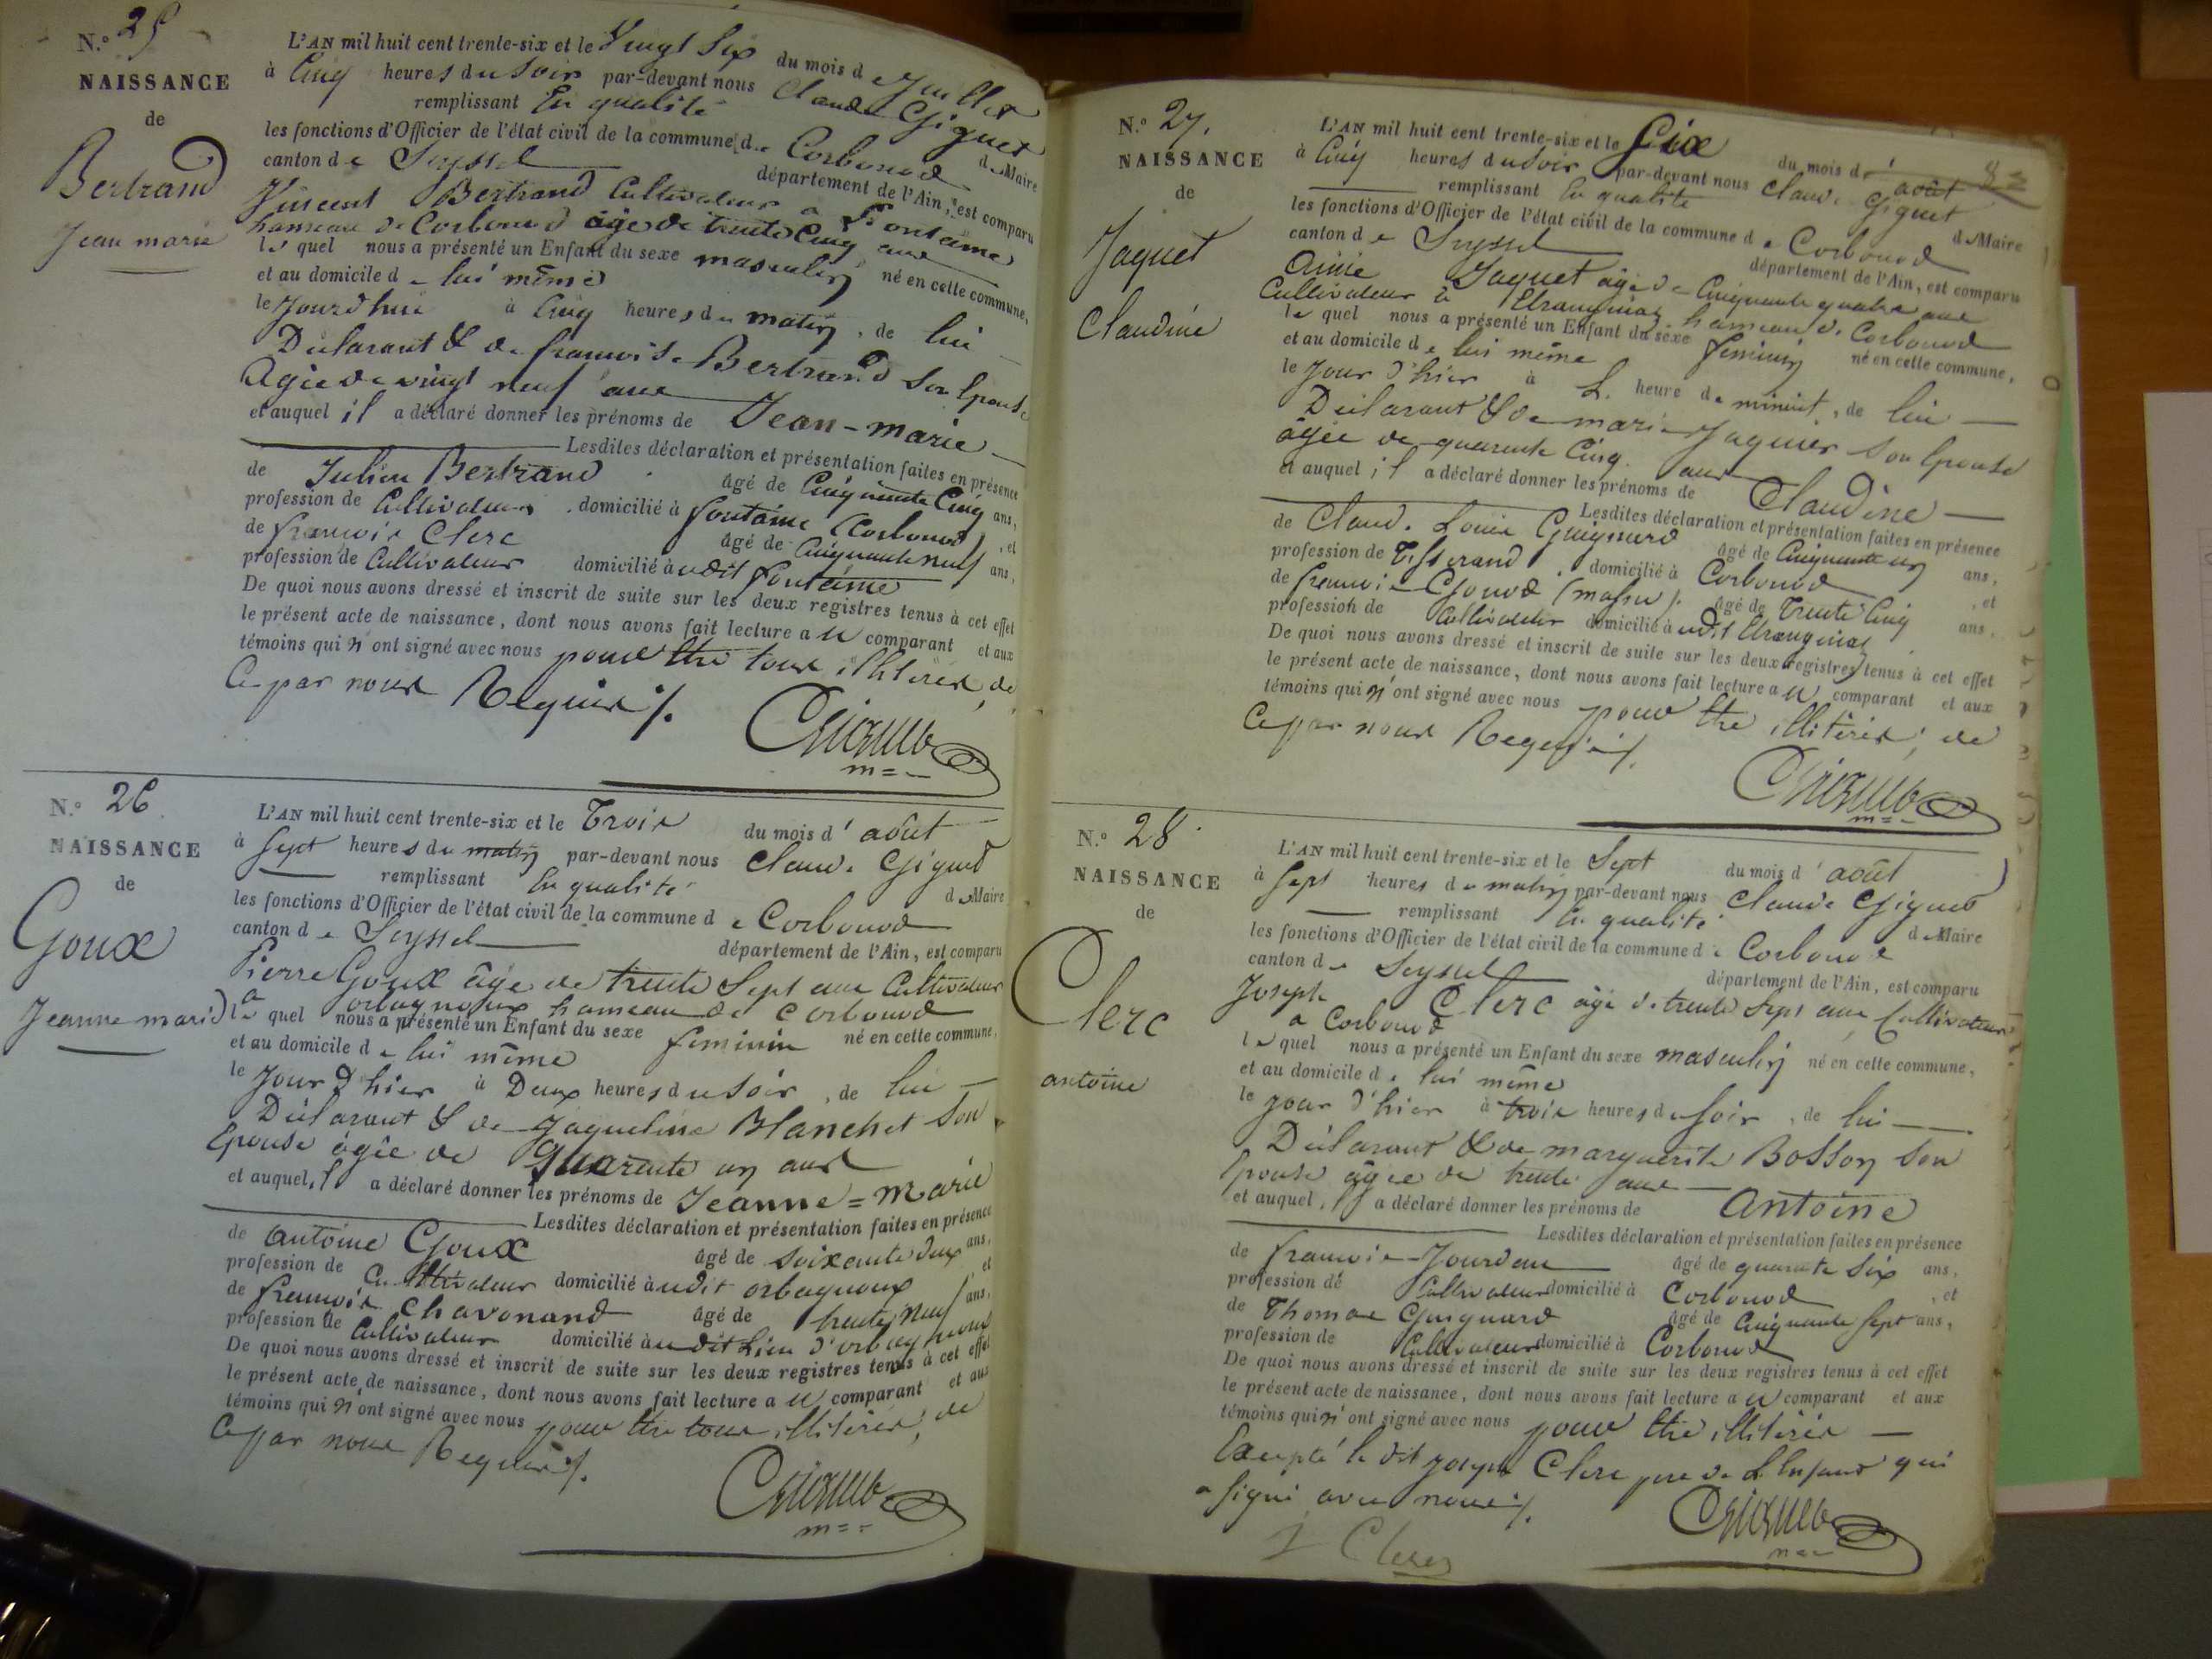 N.° 25
NAISSANCE
de
Bertrand
Jean marie
L'AN mil huit cent trente-six et le Vingt Six du mois de Juillet
à Cinq heures du Soir par-devant nous Claude Giguet
remplissant En qualité de Maire
les fonctions d'Officier de l'état civil de la commune de Corbonod
canton de Seyssel département de l'Ain, est comparu
Vincent Bertrand Cultivateur a Fontaine
hameau de Corbonod âgé de trente Cinq ans
le quel nous a présenté un Enfant du sexe masculin né en cette commune,
et au domicile de lui même
le Jourd'hui à Cinq heures du matin, de lui
Déclarant & de francoise Bertrand Son Epouse
Agée de vingt neuf ans
et auquel il a déclaré donner les prénoms de Jean-marie
Lesdites déclaration et présentation faites en présence
de Julien Bertrand âgé de Cinquante Cinq ans,
profession de Cultivateur domicilié à fontaine (Corbonod), et
de francois Clerc âgé de Cinquante neuf ans,
profession de Cultivateur domicilié à udit fontaine
De quoi nous avons dressé et inscrit de suite sur les deux registres tenus à cet effet
le présent acte de naissance, dont nous avons fait lecture a u comparant et aux
témoins qui n'ont signé avec nous pour être tous illiterés, de
Ce par nous Requis ./.
Giguet
m=--
N.° 26
NAISSANCE
de
Goux
Jeanne marie
L'AN mil huit cent trente-six et le Trois du mois d'août
à Sept heures du matin par-devant nous Claude Giguet
remplissant En qualité de Maire
les fonctions d'Officier de l'état civil de la commune de Corbonod
canton de Seyssel département de l'Ain, est comparu
Pierre Goux âgé de trente Sept ans Cultivateur
a orbagnoux hameau de Corbonod
le quel nous a présenté un Enfant du sexe feminin né en cette commune,
et au domicile de lui même
le Jour d'hier à Deux heures du Soir, de lui
Déclarant & de Jaqueline Blanchet Son
Epouse âgée de quarente un ans
et auquel il a déclaré donner les prénoms de Jeanne=marie
Lesdites déclaration et présentation faites en présence
de antoine Goux âgé de soixante deux ans,
profession de Cultivateur domicilié à udit orbagnoux, et
de francois Chavonand âgé de trente neuf ans,
profession de Cultivateur domicilié à udit Lieu d'orbagnoux
De quoi nous avons dressé et inscrit de suite sur les deux registres tenus à cet effet
le présent acte de naissance, dont nous avons fait lecture a u comparant et aux
témoins qui n'ont signé avec nous pour être tous illiterés, de
Ce par nous Requis ./.
Giguet
m=--
N.° 27.
NAISSANCE
de
Jaquet
Claudine
L'AN mil huit cent trente-six et le Six du mois d'août
à Cinq heures du soir par-devant nous Claude Giguet
remplissant En qualité de Maire
les fonctions d'Officier de l'état civil de la commune de Corbonod
canton de Seyssel département de l'Ain, est comparu
Aimé Jaquet âgé de Cinquante quatre ans
Cultivateur à Etranginaz hameau de Corbonod
le quel nous a présenté un Enfant du sexe feminin né en cette commune,
et au domicile de lui même
le Jour d'hier à L. heure de minuit, de lui
Déclarant & de marie Jaquier Son Epouse
âgée de quarente Cinq ans
et auquel il a déclaré donner les prénoms de Claudine
Lesdites déclaration et présentation faites en présence
de Claude Louis Guignard âgé de Cinquante un ans,
profession de Tisserand domicilié à Corbonod, et
de francois Gonod âgé de Trente Cinq ans,
profession de Cultivateur domicilié à udit Etranginaz
De quoi nous avons dressé et inscrit de suite sur les deux registres tenus à cet effet
le présent acte de naissance, dont nous avons fait lecture a u comparant et aux
témoins qui n'ont signé avec nous pour être illiterés, de
Ce par nous Requis ./.
Giguet
m=--
N.° 28
NAISSANCE
de
Clerc
antoine
L'AN mil huit cent trente-six et le Sept du mois d'août
à Sept heures du matin par-devant nous Claude Giguet
remplissant En qualité de Maire
les fonctions d'Officier de l'état civil de la commune de Corbonod
canton de Seyssel département de l'Ain, est comparu
Joseph Clerc âgé de trente Sept ans Cultivateur
a Corbonod
le quel nous a présenté un Enfant du sexe masculin né en cette commune,
et au domicile de lui même
le jour d'hier à trois heures du Soir, de lui
Déclarant & de marguerite Bosson Son
Epouse âgée de trente ans
et auquel il a déclaré donner les prénoms de Antoine
Lesdites déclaration et présentation faites en présence
de francois Jourdan âgé de quarente Six ans,
profession de Cultivateur domicilié à Corbonod, et
de Thomas Guignard âgé de Cinquante Sept ans,
profession de Cultivateur domicilié à Corbonod
De quoi nous avons dressé et inscrit de suite sur les deux registres tenus à cet effet
le présent acte de naissance, dont nous avons fait lecture a u comparant et aux
témoins qui n'ont signé avec nous pour être illiterés
Excepté le dit joseph Clerc pere de L'Enfant qui
a signé avec nous ./.
J Clerc
Giguet
m=--